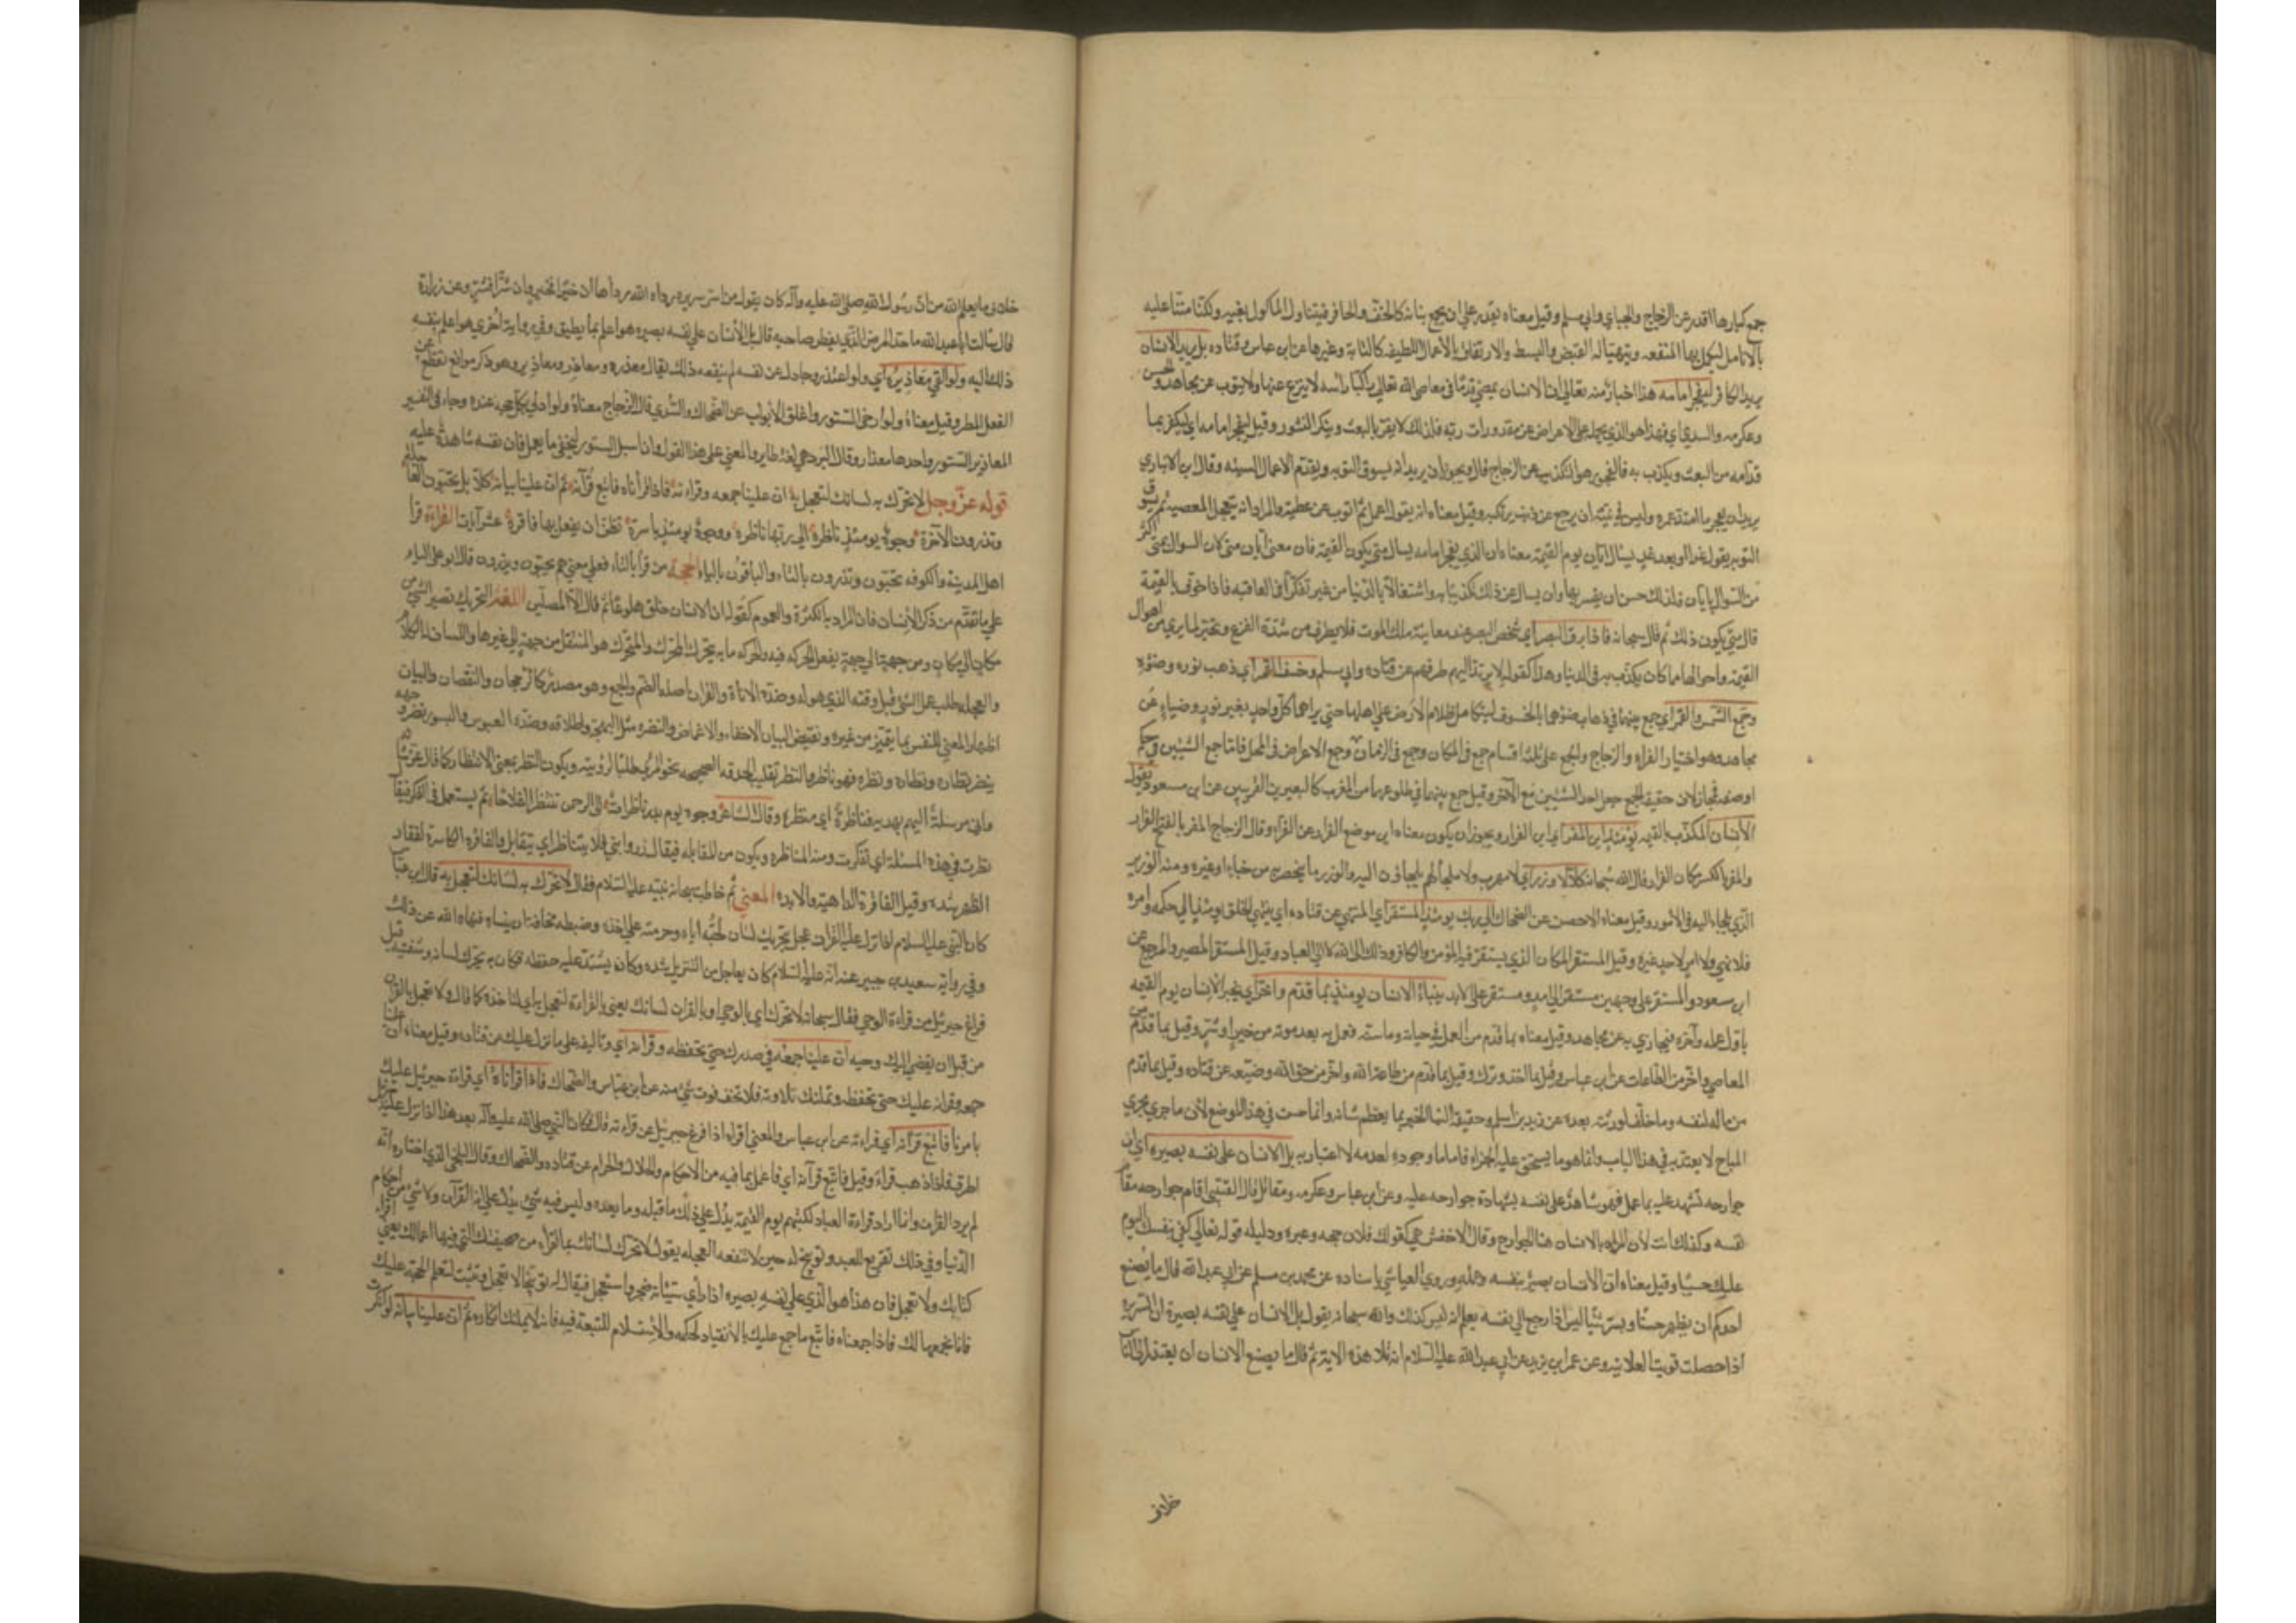 جمع كبارها اقدر عن الزجاج والجباي وابي مسلم وقيل معناه نقدر على ان نجمع بنانه كالخف والحافر فيتناول الماكول بفيه ولكننا مننا عليه
بالانامل ليكمل بها المنفعه ويتهيا له القبض والبسط والارتفاق بالاعمال اللطيفه كالكتابة وغيرها عن ابن عباس وقتاده بل يريد الانسان
يريد الكافر ليفجر امامه هذا اخبار منه تعالى ان الانسان يمضي قدما في معاصي الله تعالى راكبا راسه لا ينزع عنها ولا يتوب عن مجاهد والحسن
وعكرمه والسدي اي فهذا هو الذي يحمله على الاعراض عن مقدورات ربه فلذلك لا يقر بالبعث وينكر النشور وقيل ليفجر امامه اي ليكفر بما
قدامه من البعث ويكذب به فالفجور هو التكذيب عن الزجاج قال ويجوز ان يريد انه يسوف التوبه ويقدم الاعمال السيئه وقال ابن الانباري
يريد ان يفجر ما امتد عمره وليس في نيته ان يرجع عن ذنب يرتكبه وقيل معناه انه يقول اعمل ثم اتوب عن عطية والمراد انه يتعجل المعصيه ثم يسوف
التوبه يقول غدا وبعد غد يسأل ايان يوم القيمة معناه ان الذي يفجر امامه يسال متى يكون القيمة فان معنى ايان متى كان السوال بمتى اكثر
من السوال بايان فلذلك حسن ان يفسر بها وان يسال عن ذلك تكذيبا به واشتغالا بالدنيا من غير تفكر في العاقبه فاذا خوف بالقيمة
قال متى يكون ذلك ثم قال سبحانه فاذا برق البصر اي شخص البصر عند معاينة ملك الموت فلا يطرف من شدة الفزع وتحير لما يرى من اهوال
القيمة واحوالها ما كان يكذب به في الدنيا وهذا كقوله لا يرتد اليهم طرفهم عن قتاده وابي مسلم وخسف القمر اي ذهب نوره وضوؤه
وجمع الشمس والقمر اي جمع بينهما في ذهاب ضوءهما بالخسوف ليتكامل ظلام الارض على اهلها حتى يراهما كل واحد بغير نور وضياء عن
مجاهد وهو اختيار الفراء والزجاج والجمع على ثلثة اقسام جمع في المكان وجمع في الزمان وجمع الاعراض في المحل فاما جمع الشيئين في حكم
او صفة فمجاز لان حقيقة الجمع جعل احد الشيئين مع الآخر وقيل جمع بينهما في طلوعهما من المغرب كالبعيرين القرينين عن ابن مسعود يقول
الانسان المكذب بالقيمة يومئذ اين المفر اي اين الفرار ويجوز ان يكون معناه اين موضع الفرار عن الفراء وقال الزجاج المفر بالفتح الفرار
والمفر بالكسر مكان الفرار قال الله سبحانه كلا لا وزر اي لا مهرب ولا ملجا لهم يلجاؤن اليه والوزر ما يتحصن به من جبل او غيره ومنه الوزير
الذي يلجاء اليه في الامور وقيل معناه لا حصن عن الضحاك الى ربك يومئذ المستقر اي المنتهى عن قتاده اي ينتهي الخلق يومئذ الى حكمه وامره
فلا نهي ولا امر لاحد غيره وقيل المستقر المكان الذي يستقر فيه المؤمن والكافر وذلك الى الله لا الى العباد وقيل المستقر المصير والمرجع عن
ابن مسعود والمستقر على وجهين مستقر الى امد ومستقر على الابد ينباء الانسان يومئذ بما قدم واخر اي يخبر الانسان يوم القيمة
باول عمله وآخره فيجازي به عن مجاهد وقيل معناه بما قدم من العمل في حياته وما سنه فعمل به بعد موته من خير او شر وقيل بما قدم من
المعاصي واخر من الطاعات عن ابن عباس وقيل بما اخذ وترك وقيل بما قدم من طاعة الله واخر من حق الله وضيعه عن قتاده وقيل بما قدم
من ماله لنفسه وما خلفه لورثته بعده عن زيد بن اسلم وحقيقة النبا الخبر بما يعظم شانه وانما حسن في هذا الموضع لان ما جرى مجرى
المباح لا يعتد به في هذا الباب وانما هو ما يستحق عليه الجزاء فاما ما وجوده لعدمه لا اعتبار به بل الانسان على نفسه بصيره اي ان
جوارحه تشهد عليه بما عمل فهو شاهد على نفسه بشهادة جوارحه عليه وعن ابن عباس وعكرمه ومقاتل قال القتيبي اقام جوارحه مقام
نفسه وكذلك انث لان المراد بالانسان هنا الجوارح وقال الاخفش هي كقولك فلان حجه وعبره ودليله قوله تعالى كفى بنفسك اليوم
عليك حسيبا وقيل معناه ان الانسان بصير بنفسه وعمله وروى العياشي باسناده عن محمد بن مسلم عن ابي عبد الله قال ما يصنع
احدكم ان يظهر حسنا ويستر سيئا اليس اذا رجع الى نفسه يعلم انه ليس كذلك والله سبحانه يقول بل الانسان على نفسه بصيرة ان السريره
اذا صلحت قويت العلانيه وعن عمر بن يزيد عن ابي عبد الله عليه السلام انه تلا هذه الاية ثم قال ما يصنع الانسان ان يعتذر الى الناس
خلاف
خلاف ما يعلم الله منه ان رسول الله صلى الله عليه وآله كان يقول من اسر سريره رداه الله رداها ان خيرا فخير وان شرا فشر وعن زرارة
قال سالت ابا عبد الله ما حد المرض الذي يفطر صاحبه قال بل الانسان على نفسه بصيره هو اعلم بما يطيق وفي رواية اخرى هو اعلم بنفسه
ذلك اليه ولو القى معاذيره اي ولو اعتذر وجادل عن نفسه لم ينفعه ذلك يقال معذره ومعاذر ومعاذير وهو ذكر موانع تقطع عن
الفعل المطلوب وقيل معناه ولو ارخى الستور واغلق الابواب عن الضحاك والسدي قال الزجاج معناه ولو ادلى بكل حجه عنده وجاء في التفسير
المعاذير الستور واحدها معذار وقال المبرد هي لغة طايية والمعنى على هذا القول وان اسبل الستور ليخفي ما يعمل فان نفسه شاهدة عليه
قوله عز وجل لا تحرك به لسانك لتعجل به ان علينا جمعه وقرانه فاذا قراناه فاتبع قرآنه ثم ان علينا بيانه كلا بل تحبون العاجله
وتذرون الآخرة وجوه يومئذ ناظرة الى ربها ناظرة ووجوه يومئذ باسرة تظن ان يفعل بها فاقرة عشر آيات القراءة قرا
اهل المدينة والكوفه تحبون وتذرون بالتاء والباقون بالياء الحجة من قرا بالتاء فعلى معنى هم يحبون ويذرون قال ابو علي الياء
على ما تقدم من ذكر الانسان فان المراد به الكثرة والعموم كقوله ان الانسان خلق هلوعا ثم قال الا المصلين اللغة التحريك تصيير الشئ من
مكان الى مكان ومن جهة الى جهة بفعل الحركه فيه والحركه ما به يتحرك المتحرك والمتحرك هو المنتقل من جهة الى غيرها واللسان آلة الكلام
والعجله طلب عمل الشئ قبل وقته الذي هو له وضده الاناة والقران اصله الضم والجمع وهو مصدر كالرجحان والنقصان والبيان
اظهار المعنى للنفس بما يتميز من غيره ونقيض البيان الاخفاء والاغماض والنضره مثل البهجه والطلاقه وضده العبوس والبسور نضر وجهه
ينضر نضارة ونضرة فهو ناضر والنظر تقليب الحدقه الصحيحه نحو المرئي طلبا لرؤيته ويكون النظر بمعنى الانتظار كما قال عز شانه
واني مرسلة اليهم بهديه فناظرة اي منتظرة وقال الشاعر وجوه يوم بدر ناظرات الى الرحمن تنتظر الفلاحا ثم يستعمل في الفكر فيقال
نظرت في هذه المسئلة اي تفكرت ومنه المناظره ويكون من المقابله فيقال دور بني فلان تتناظر اي يتقابل والفاقره الكاسرة لفقار
الظهر بشده وقيل الفاقرة الداهية والآبده المعنى ثم خاطب سبحانه نبيه عليه السلام فقال لا تحرك به لسانك لتعجل به قال ابن عباس
كان النبي عليه السلام اذا نزل عليه القرآن عجل بتحريك لسانه لحبه اياه وحرصه على اخذه وضبطه مخافة ان ينساه فنهاه الله عن ذلك
وفي رواية سعيد بن جبير عنه انه عليه السلام كان يعاجل من التنزيل شده وكان يشتد عليه حفظه فكان يحرك لسانه وشفتيه قبل
فراغ جبرئيل من قراءة الوحي فقال سبحانه لا تحرك اي بالوحي او بالقران لسانك يعني بالقراءة لتعجل به اي لتاخذه كما قال ولا تعجل بالقران
من قبل ان يقضى اليك وحيه ان علينا جمعه في صدرك حتى تحفظه وقرانه اي وتاليفه على ما نزل عليك عن قتاده وقيل معناه ان علينا
جمعه وقرانه عليك حتى تحفظه ويمكنك تلاوته فلا تخف فوت شئ منه عن ابن عباس والضحاك فاذا قراناه اي قراءة جبرئيل عليك
بامرنا فاتبع قرآنه اي قراءته عن ابن عباس والمعنى اقراه اذا فرغ جبريل عن قراءته قال فكان النبي صلى الله عليه وآله بعد هذا اذا نزل عليه جبرئيل
اطرق فاذا ذهب قراه وقيل فاتبع قرآنه اي فاعمل بما فيه من الاحكام والحلال والحرام عن قتاده والضحاك وقال البلخي الذي اختاره انه
لم يرد القرآن وانما اراد قراءة العباد لكتبهم يوم القيمة يدل على ذلك ما قبله وما بعده وليس فيه شئ يدل على انه القرآن ولا شئ من احكام
الدنيا وفي ذلك تقريع للعبد وتوبيخ له حين لا تنفعه العجله يقول لا تحرك لسانك بما تقراه من صحيفتك التي فيها اعمالك يعني اقراء
كتابك ولا تعجل فان هذا هو الذي على نفسه بصيره اذا راى سيئاته ضجر واستعجل فيقال له توبيخا لا تعجل وتثبت لتعلم الحجة عليك
فانا نجمعها لك فاذا جمعناه فاتبع ما جمع عليك بالانقياد لحكمه والاستسلام للتبعة فيه فانه لا يمكنك انكاره ثم ان علينا بيانه لو انكرت